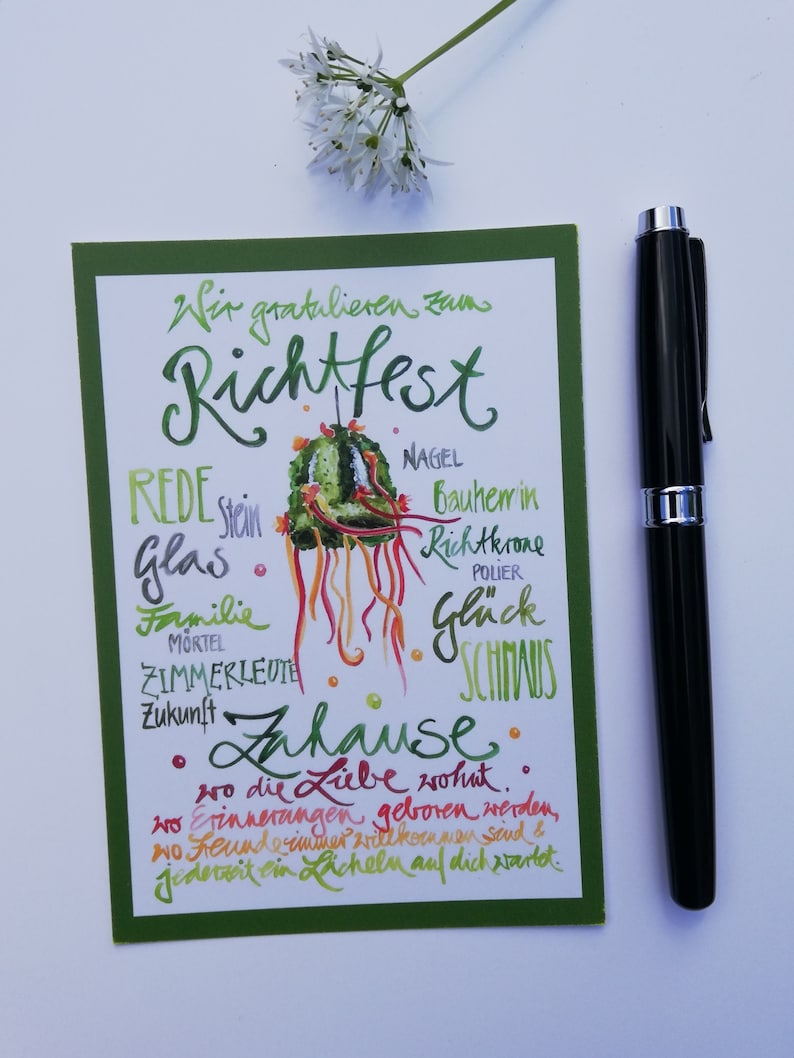 Wir gratulieren zum
Richtfest
NAGEL
REDE
Stein
Bauherrin
Glas
Richtkrone
POLIER
Familie
Glück
MÖRTEL
SCHMAUS
ZIMMERLEUTE
Zukunft
Zuhause
wo die Liebe wohnt,
wo Erinnerungen geboren werden,
wo Freunde immer willkommen sind &
jederzeit ein Lächeln auf dich wartet.